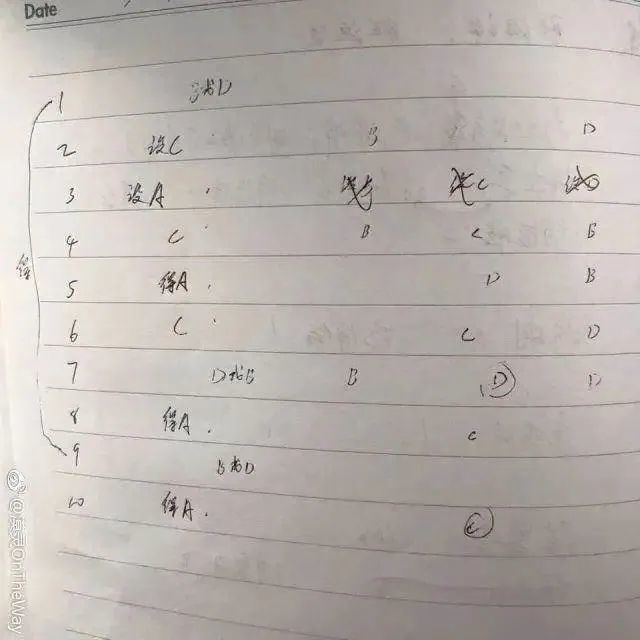 Date
1 B或D
2 没C B D
3 没A C
4 C B C B
5 得A D B
6 C C D
7 D或B B D D
8 得A C
9 B或D
10 得A C
得
OnTheWay